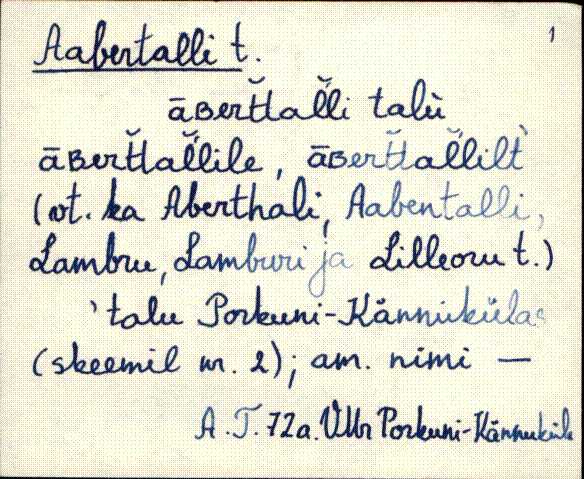 Aabertalli t. 1
āʙertt̆al̆li talù
āʙertt̆al̆lile, āʙertt̆al̆lilt̀
(vt. ka Aberthali, Aabentalli,
Lambru, Lamburi ja Lilleoru t.)
'talu Porkuni-Kännukülas
(skeemil nr. 2); am. nimi —
A.T. 72a. VMr Porkuni-Kännuküla